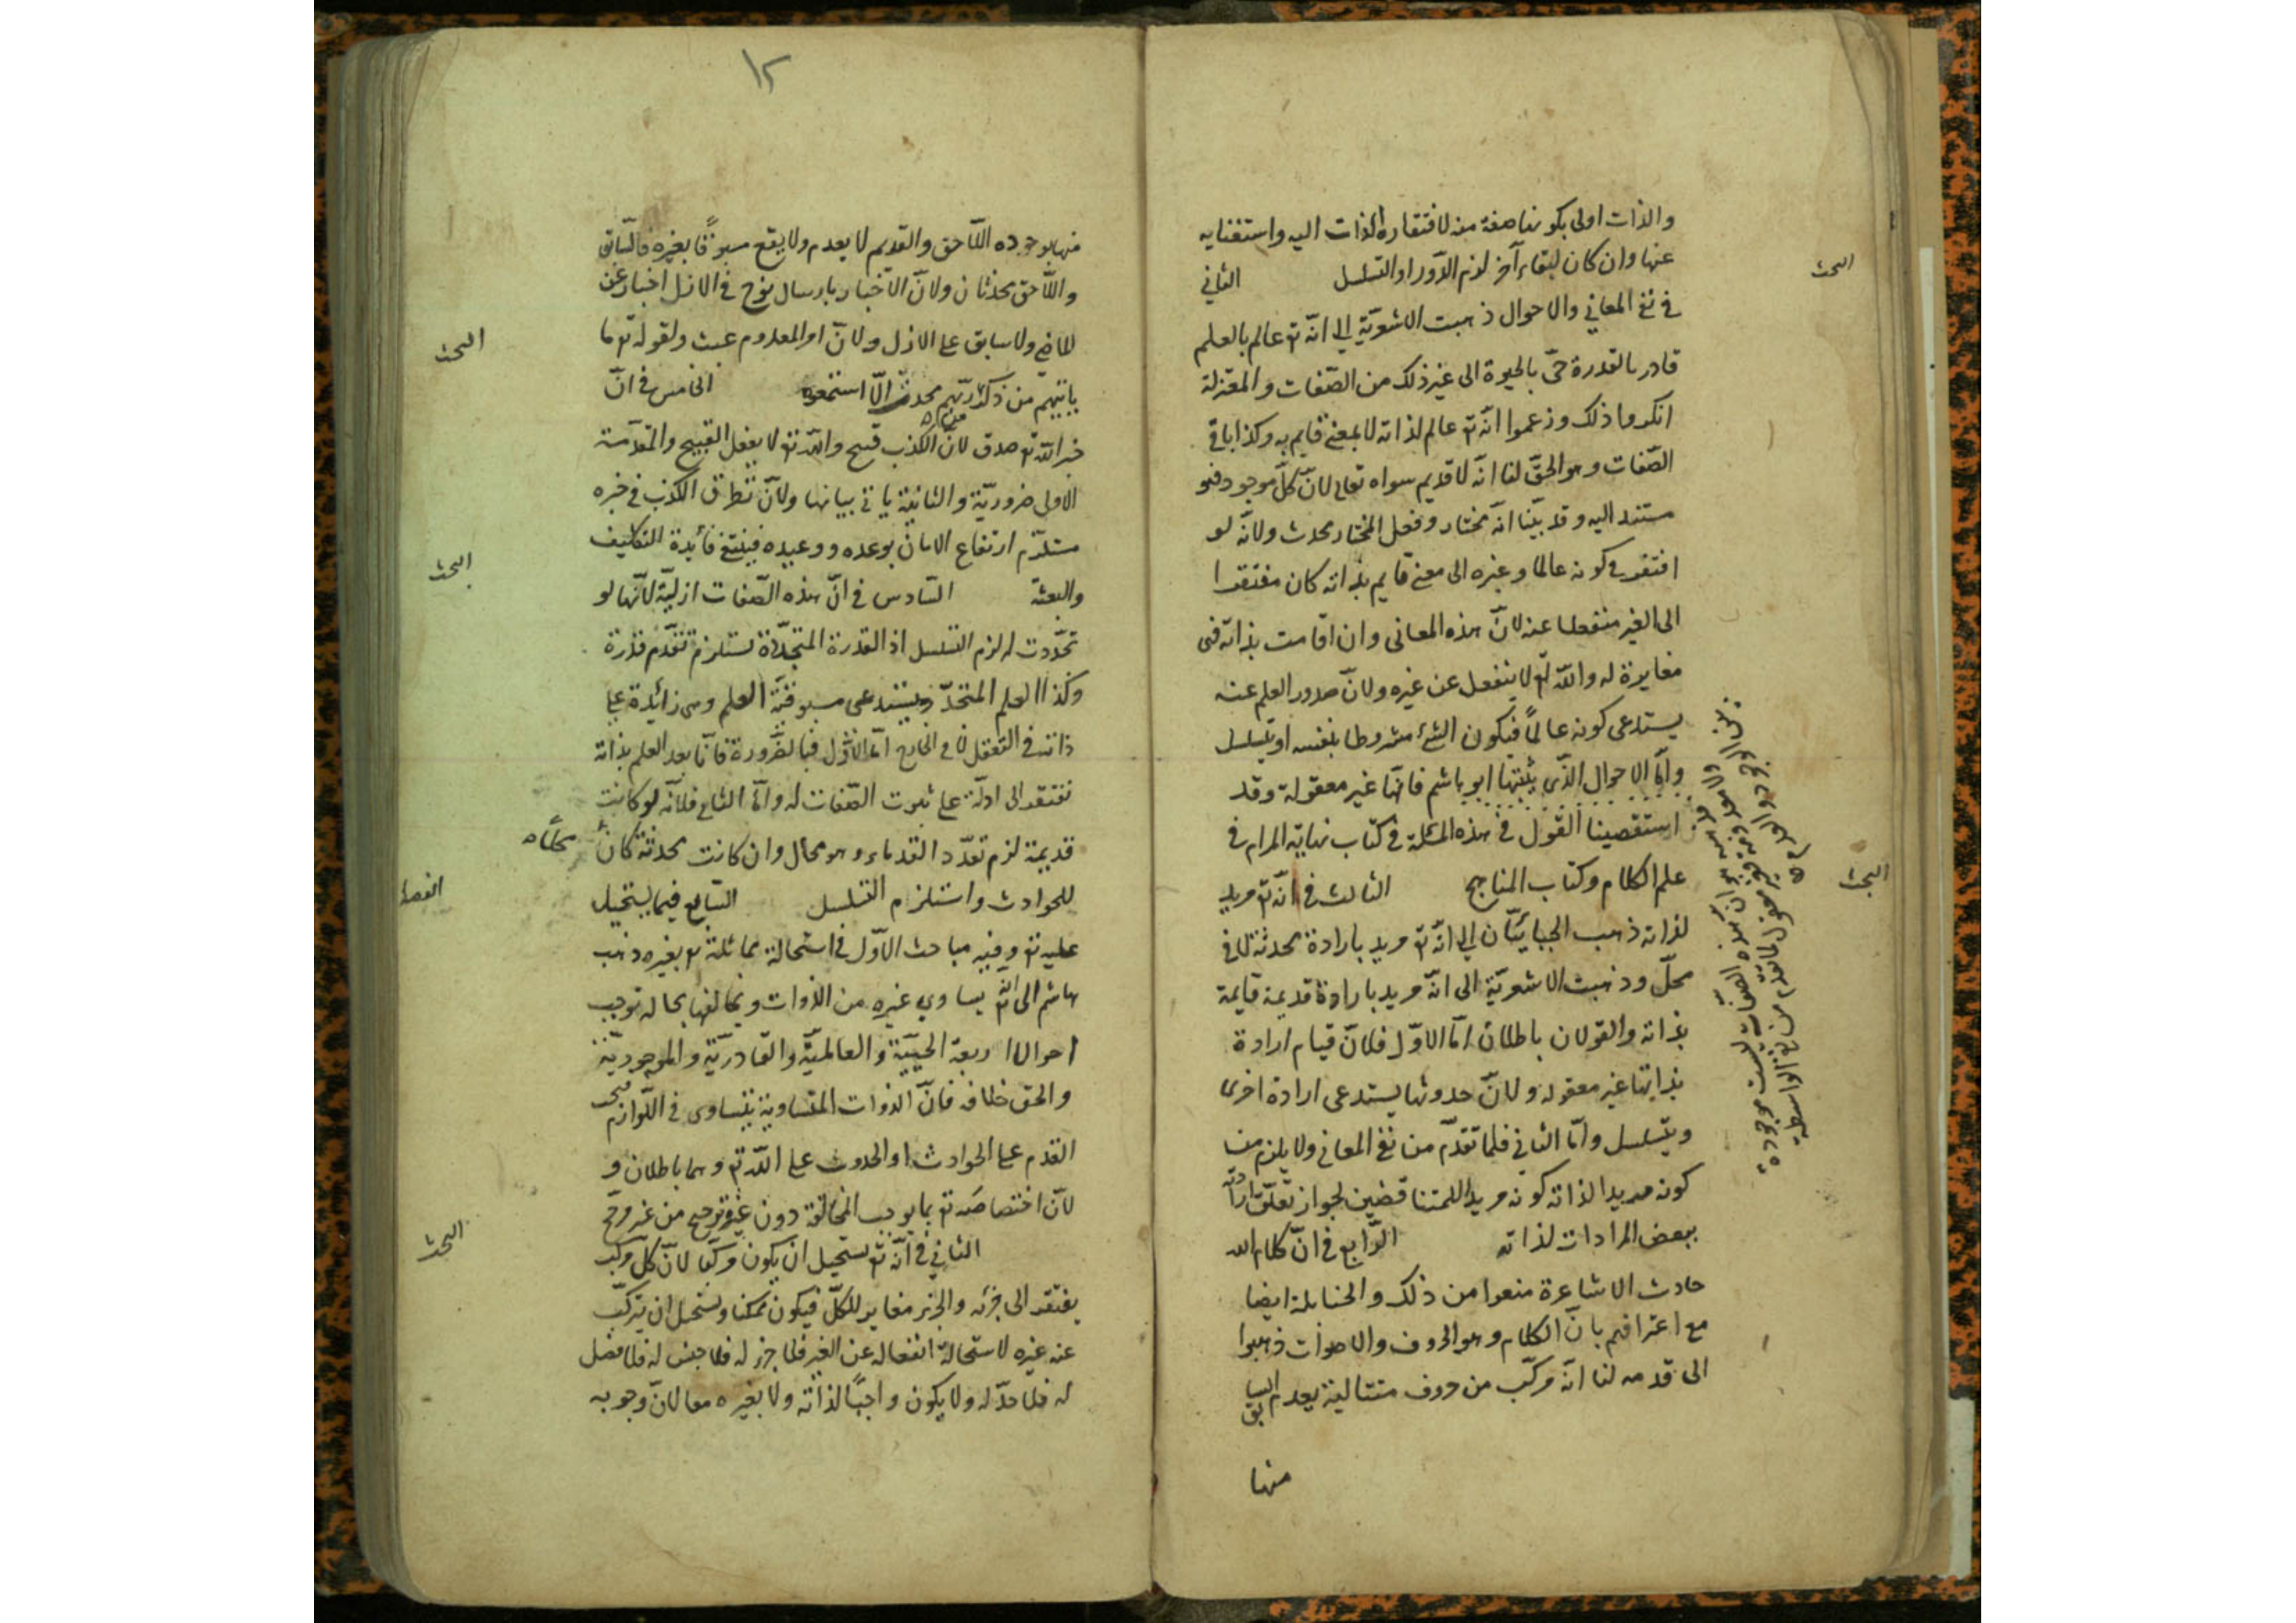 والذات اولى بكونها صفة منه لافتقاره الذات اليه واستغنايه
عنها وان كان لبقاء آخر لزم الدّور او التسلسل الثاني
البحث
في نفي المعاني والاحوال ذهبت الاشعريّة الى انّه تع عالم بالعلم
قادر بالقدرة حيّ بالحيوة الى غير ذلك من الصّفات والمعتزلة
انكروا ذلك وزعموا انّه تع عالم لذاته لا بمعنى قايم به وكذا باقي
الصّفات وهو الحقّ لنا انّه لا قديم سواه تعالى لانّ كلّ موجود فهو
مستند اليه وقد بيّنا انّه مختار وفعل المختار محدث ولانّه لو
افتقر في كونه عالما وغيره الى معنى قايم بذاته كان مفتقرا
الى الغير منفعلا عنه لانّ هذه المعاني وان قامت بذاته فهى
مغايرة له والله تع لا ينفعل عن غيره ولانّ صدور العلم عنه
يستدعى كونه عالمًا فيكون الشئ مشروطا بنفسه او يتسلسل
وامّا الاحوال الذّى يثبتها ابو هاشم فانّها غير معقولة وقد
استقصينا القول في هذه المسئلة في كتاب نهاية المرام في
علم الكلام وكتاب المناهج الثالث في انّه تع مريد
البحث
لذاته ذهب الجبائيّان الى انّه تع مريد بارادة محدثة لا في
محلّ وذهبت الاشعريّة الى انّه مريد بارادة قديمة قايمة
بذاته والقولان باطلان امّا الاوّل فلانّ قيام ارادة
بذاتها غير معقوله ولانّ حدوثها يستدعى ارادة اخرى
ويتسلسل وامّا الثاني فلما تقدّم من نفي المعاني ولا يلزم من
كونه مريدا لذاته كونه مريدا للمتناقضين لجواز تعلّق ارادته
ببعض المرادات لذاته الرّابع في انّ كلام الله
حادث الاشاعرة منعوا من ذلك والحنابلة ايضا
مع اعترافهم بانّ الكلام وهو الحروف والاصوات ذهبوا
الى قدمه لنا انّه مركّب من حروف متتالية يعدم السابق
منها
١٢
منها بوجوده اللّاحق والقديم لا يعدم ولا يقع مسبوقًا بغيره فالسّابق
واللّاحق محدثان ولانّ الاخبار بارسال نوح في الازل اخبار عن
الماضي ولا سابق على الازل ولانّ امر المعدوم عبث ولقوله تع ما
البحث
ياتيهم من ذكر من ربّهم محدث الّا استمعوه الخامس في انّ
خبر الله تع صدق لانّ الكذب قبيح والله تع لا يفعل القبيح والمقدّمة
الاولى ضروريّة والثانية ياتي بيانها ولانّ تطرّق الكذب في خبره
مستلزم ارتفاع الامان بوعده ووعيده فينتفي فائدة التكليف
والبعثة السّادس في انّ هذه الصّفات ازليّة لانّها لو
البحث
تجدّدت له لزم التسلسل اذ القدرة المتجدّدة تستلزم تقدّم قدرة
وكذا العلم المتجدّد يستدعى مسبوقيّة العلم وهى زائدة على
ذاته في التعقل لا في الخارج امّا الاوّل فبالضّرورة فانّا بعد العلم بذاته
نفتقر الى ادلّة على ثبوت الصّفات له وامّا الثاني فلانّه لو كانت
قديمة لزم تعدّد القدماء وهو محال وان كانت محدثة كان محلًّا
للحوادث واستلزم التسلسل السّابع فيما يستحيل
الفصل
عليه تع وفيه مباحث الاوّل في استحالة مماثلة تع بغيره ذهب
هاشم الى انّه تع يساوي غيره من الذوات ويخالفها بحاله توجب
احوالا اربعة الحييّة والعالميّة والقادريّة والموجوديّة
والحق خلافه فانّ الذوات المتساوية يتساوى في اللّوازم فيجب
القدم على الحوادث او الحدوث على الله تع وهما باطلان و
لانّ اختصاصه تع بما يوجب المخالفة دون غيره ترجيح من غير مرجّح
الثاني في انّه تع يستحيل ان يكون مركّبا لانّ كلّ مركّب
البحث
يفتقر الى جزئه والجزء مغاير للكلّ فيكون ممكنا ويستحيل ان يتركّب
عنه غيره لاستحالة انفعاله عن الغير فلا جزء له فلا جنس له فلا فصل
له فلا حدّ له ولا يكون واجبًا لذاته ولا بغيره معا لانّ وجوبه